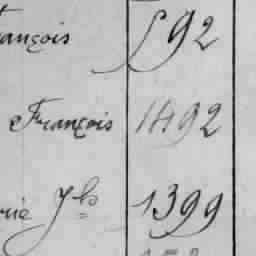 ançois 592
François 1492
rie Jh 1399